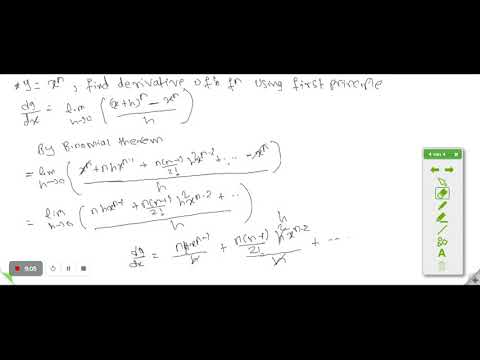 * y = xⁿ, find derivative of fn using first principle
dy/dx = lim h→0 ((x+h)ⁿ − xⁿ / h)
By Binomial theorem
= lim h→0 (xⁿ + nhxⁿ⁻¹ + n(n−1)/2! h²xⁿ⁻² + ... − xⁿ / h)
= lim h→0 (nhxⁿ⁻¹ + n(n−1)/2! h²xⁿ⁻² + ... / h)
dy/dx = nhxⁿ⁻¹/h + n(n−1)/2! h²xⁿ⁻²/h + ....
h
9:05
A